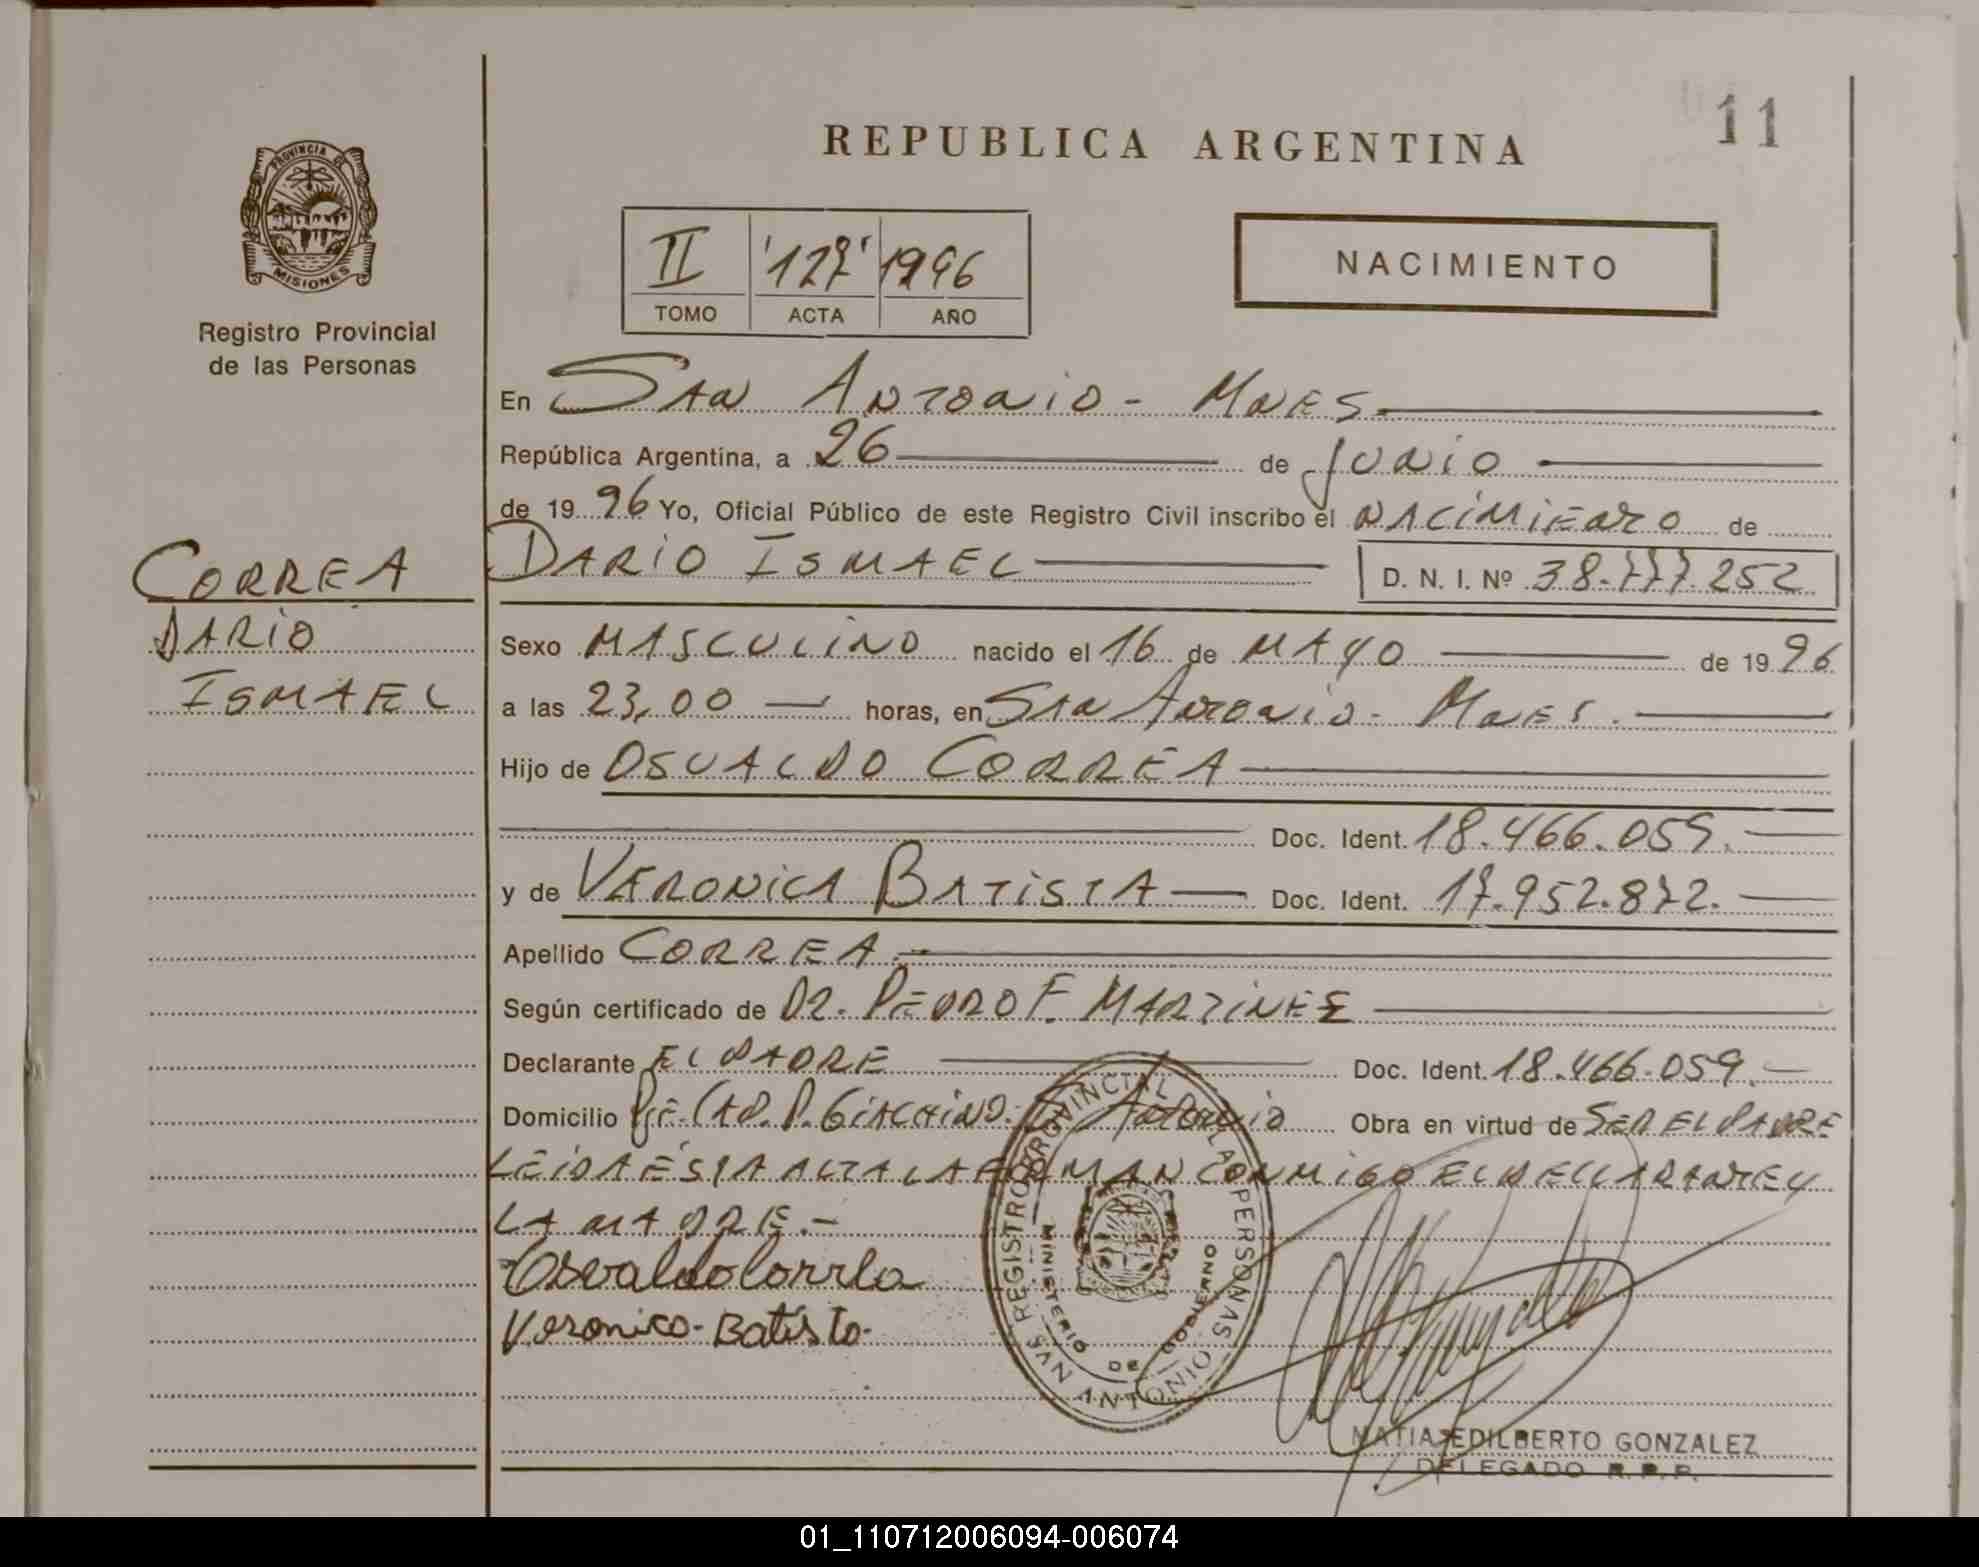 11
REPUBLICA ARGENTINA
PROVINCIA DE
MISIONES
Registro Provincial
de las Personas
II '127' 1996
TOMO ACTA AÑO
NACIMIENTO
En SAN ANTONIO - MNES.
República Argentina, a 26 de JUNIO
de 1996 Yo, Oficial Público de este Registro Civil inscribo el NACIMIENTO de
DARIO ISMAEL D. N. I. Nº 38.777.252
CORREA
DARIO
ISMAEL
Sexo MASCULINO nacido el 16 de MAYO de 1996
a las 23,00 horas, en SAN ANTONIO - MNES.
Hijo de OSVALDO CORREA
Doc. Ident. 18.466.059.
y de VERONICA BATISTA Doc. Ident. 17.952.872.
Apellido CORREA.-
Según certificado de DR. PEDRO F. MARTINEZ
Declarante EL PADRE Doc. Ident. 18.466.059.
Domicilio CAP. P. GIACHINO. S. ANTONIO Obra en virtud de SER EL PADRE
LEIDA ESTA ACTA LA FIRMAN CONMIGO EL DECLARANTE Y
LA MADRE.-
Osvaldo Correa
Veronica - Batista
REGISTRO PROVINCIAL DE LAS PERSONAS
MINISTERIO DE GOBIERNO
SAN ANTONIO
MATIAS EDILBERTO GONZALEZ
DELEGADO R. P. P.
01_110712006094-006074